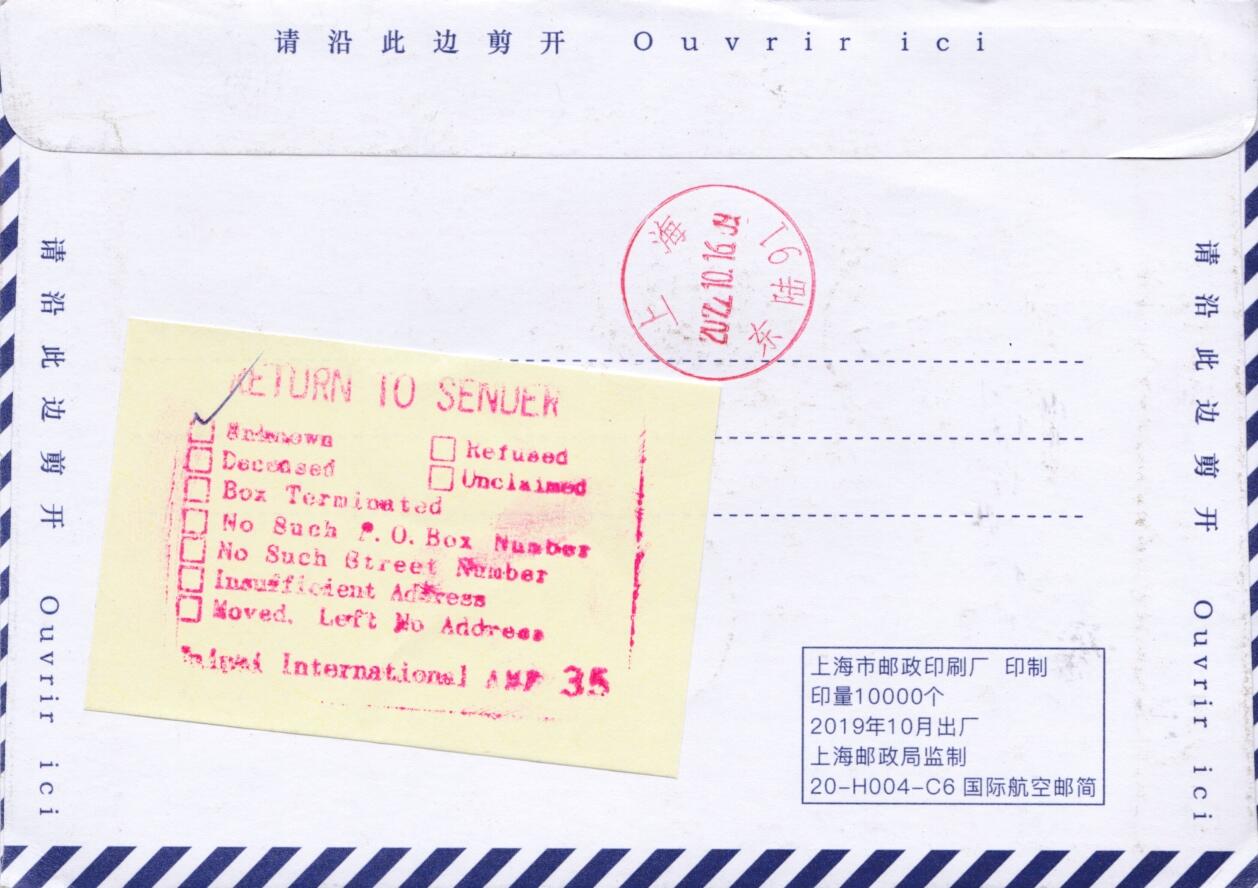 请沿此边剪开 Ouvrir ici
请沿此边剪开 Ouvrir ici
上海
2022.10.16
东陆91
RETURN TO SENDER
Unknown
Refused
Deceased
Unclaimed
Box Terminated
No Such P.O. Box Number
No Such Street Number
Insufficient Address
Moved, Left No Address
International AMP 35
请沿此边剪开 Ouvrir ici
上海市邮政印刷厂 印制
印量10000个
2019年10月出厂
上海邮政局监制
20-H004-C6 国际航空邮简